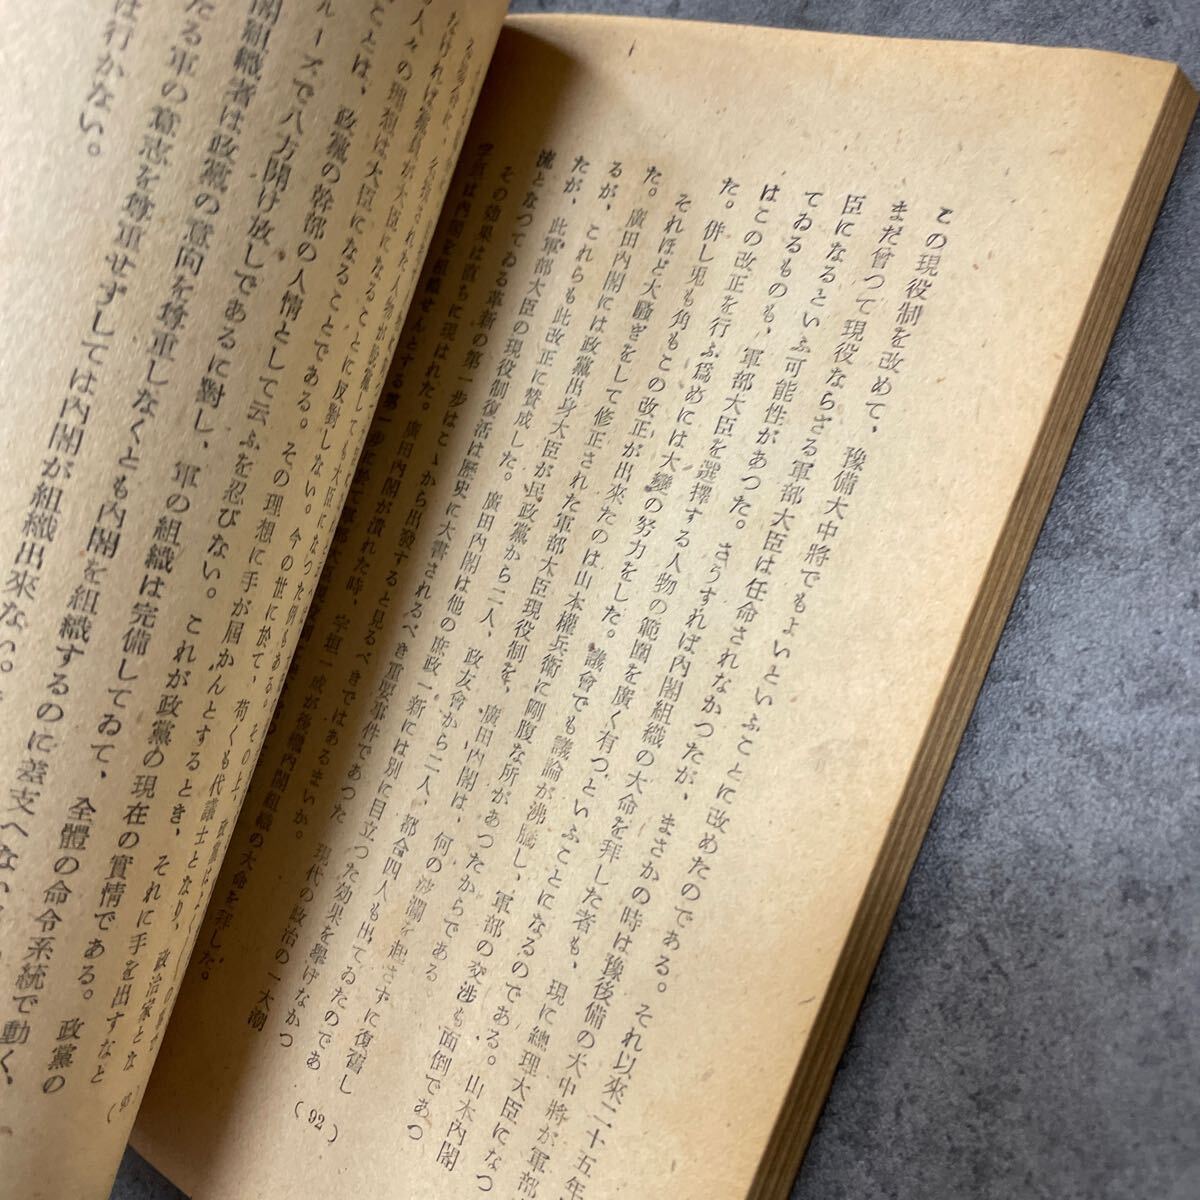 この現役制を改めて、豫備大中將でもよいといふことに改めたのである。それ以來二十五年
まだ曾つて現役ならざる軍部大臣は任命されなかつたが、まさかの時は豫後備の大中將が軍部
臣になるといふ可能性があつた。さうすれば内閣組織の大命を拜した者も、現に總理大臣になつ
てゐるものも、軍部大臣を選擇する人物の範圍を廣く有つといふことになるのである。山本内閣
はこの改正を行ふ爲めには大變の努力をした。議會でも議論が沸騰し、軍部の交渉も面倒であつ
た。併し兎も角もこの改正が出來たのは山本權兵衛に剛腹な所があつたからである
それほど大騒ぎをして修正された軍部大臣現役制を、廣田内閣は、何の波瀾を起さずに復舊し
た。廣田内閣には政黨出身大臣が民政黨から二人、政友會から二人、都合四人も出てゐたのであ
るが、これらも此改正に賛成した。廣田内閣は他の庶政一新には別に目立つた効果を擧げなかつ
たが、此軍部大臣の現役制復活は歴史に大書されるべき重要事件であつた 現代の政治の一大潮
流となつてゐる革新の第一歩はこゝから出發すると見るべきではあるまいか。
その効果は直ちに現はれた。廣田内閣が潰れた時、宇垣一成が後繼内閣組織の大命を拜した。
宇垣は内閣を組織せんとする第一歩に於て軍部大臣
(92)
なければ黨員が大臣になることに反對しない。
の人々の理想は大臣になることである。その理想に手が屆かんとするとき、それに手を出すなと
ことは、政黨の幹部の人情として云ふを忍びない。これが政黨の現在の實情である。政黨の
ルーズで八方開け放しであるに對し、軍の組織は完備してゐて、全體の命令系統で動く、
閣組織者は政黨の意向を尊重しなくとも内閣を組織するのに差支へない
たる軍の意志を尊重せずしては内閣が組織出來ない。
は行かない。